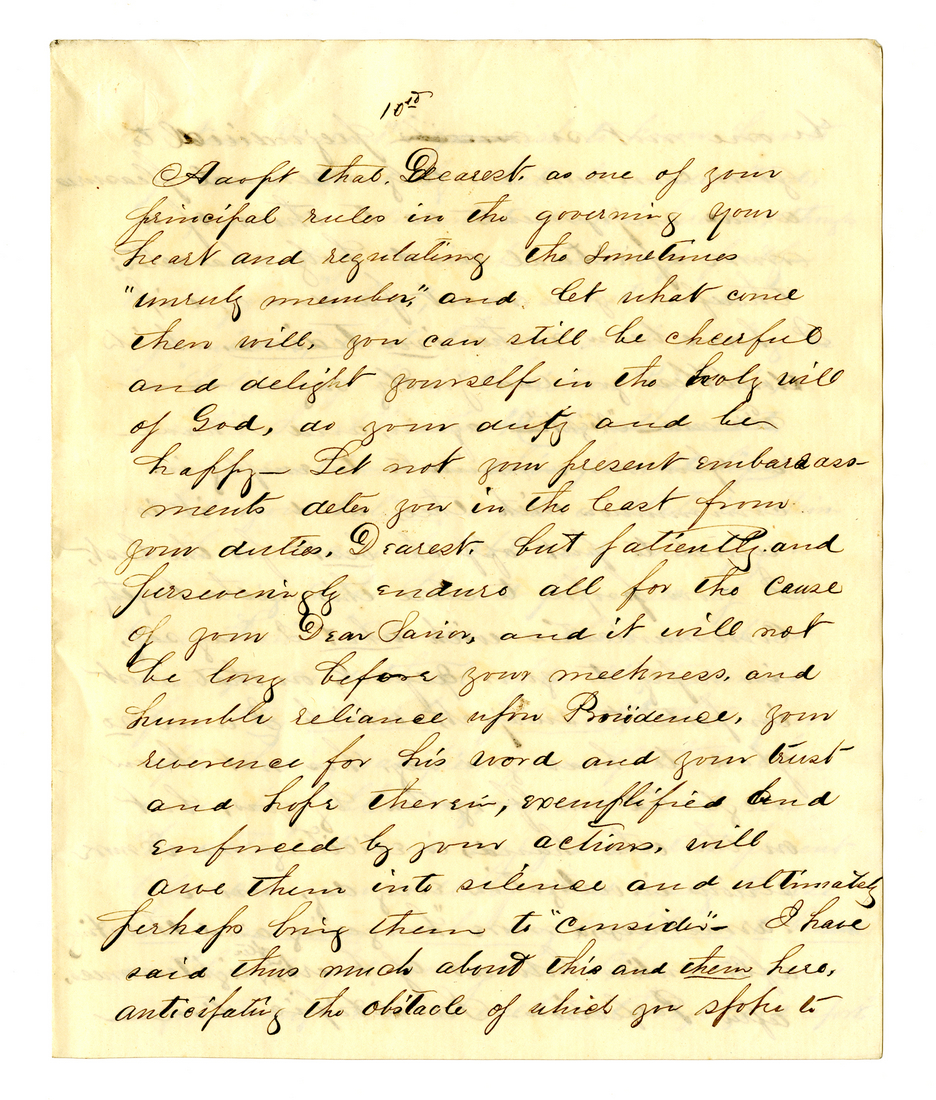 10th
Adopt that, Dearest, as one of your
principal rules in the governing your
heart and regulating the sometimes
"unruly member," and let what come
then will, you can still be cheerful
and delight yourself in the holy will
of God, do your duty and be
happy— Let not your present embarrass-
ments deter you in the least from
your duties, Dearest, but patiently and
perseveringly endure all for the cause
of your Dear Savior, and it will not
be long before your meekness, and
humble reliance upon Providence, your
reverence for his word and your trust
and hope therein, exemplified and
enforced by your actions, will
awe them into silence and ultimately
perhaps bring them to "consider"— I have
said thus much about this and them here,
anticipating the obstacle of which you spoke to